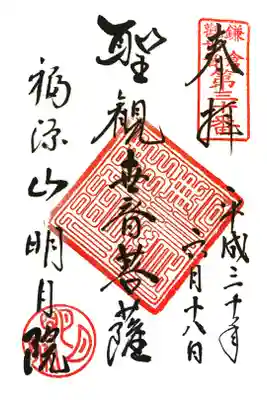 奉拝
鎌倉
観音第三十番
平成二十年
六月十八日
聖観世音菩薩
福源山明月院